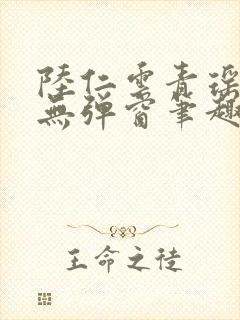 陸仁雲青瑤
無彈窗筆趣
王命之徒